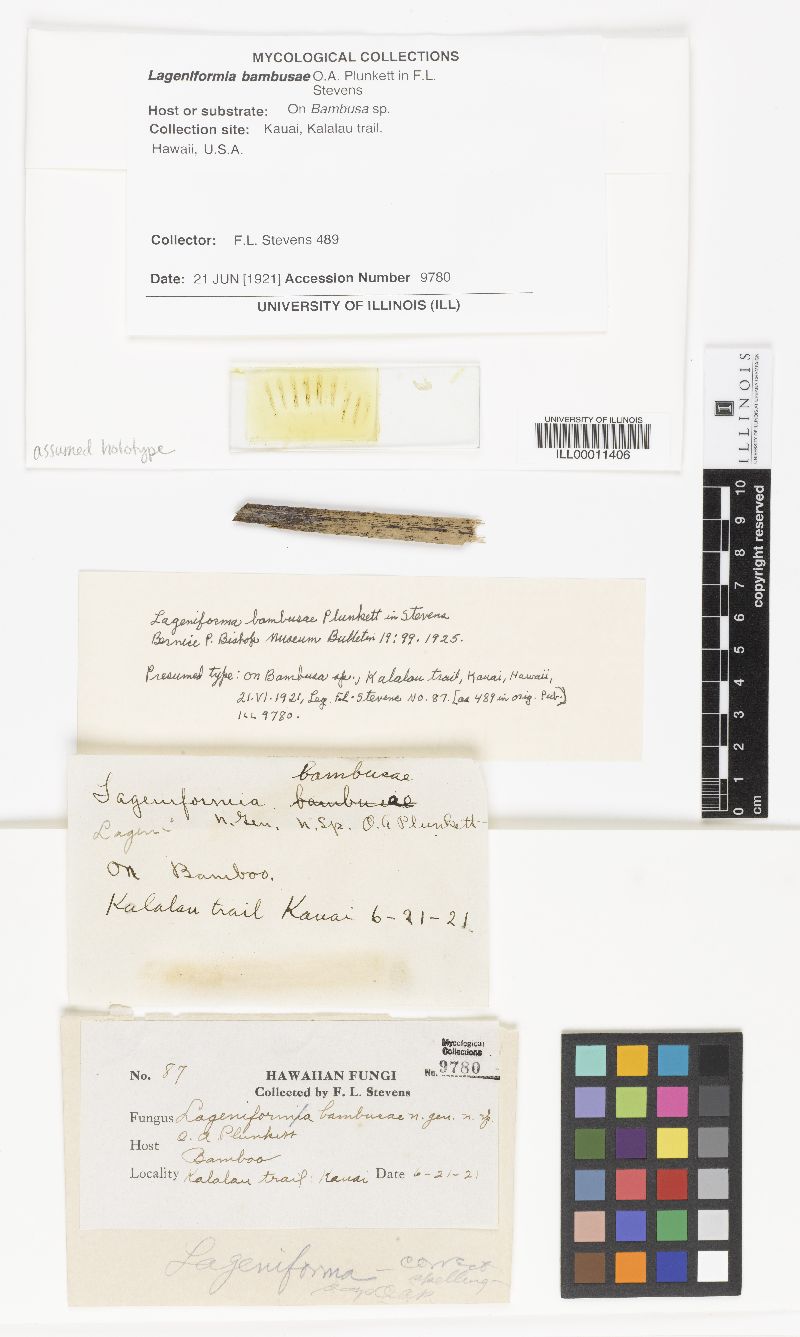 MYCOLOGICAL COLLECTIONS
Lageniformia bambusae O.A. Plunkett in F.L.
Stevens
Host or substrate: On Bambusa sp.
Collection site: Kauai, Kalalau trail.
Hawaii, U.S.A.
Collector: F.L. Stevens 489
Date: 21 JUN [1921] Accession Number 9780
UNIVERSITY OF ILLINOIS (ILL)
assumed holotype
UNIVERSITY OF ILLINOIS
ILL00011406
ILLINOIS
10 9 8 7 6 5 4 3 2 1 0 cm
copyright reserved
Lageniforma bambusae Plunkett in Stevens
Bernice P. Bishop Museum Bulletin 19:99. 1925.
Presumed type: on Bambusa sp., Kalalau trail, Kauai, Hawaii,
21.VI.1921, Leg. F.L. Stevens No. 87. [as 489 in orig. Pub.]
ILL 9780.
bambusae
Lageniformia bambusae
Lageni n. Gen. n. Sp. O.A Plunkett
On Bamboo.
Kalalau trail Kauai 6-21-21
Mycological
Collections
No. 9780
No. 87 HAWAIIAN FUNGI
Collected by F. L. Stevens
Fungus Lageniformia bambusae n. gen. n. sp.
O. A Plunkett
Host Bamboo
Locality Kalalau trail Kauai Date 6-21-21
Lageniforma - correct
spelling
says O.A.P.